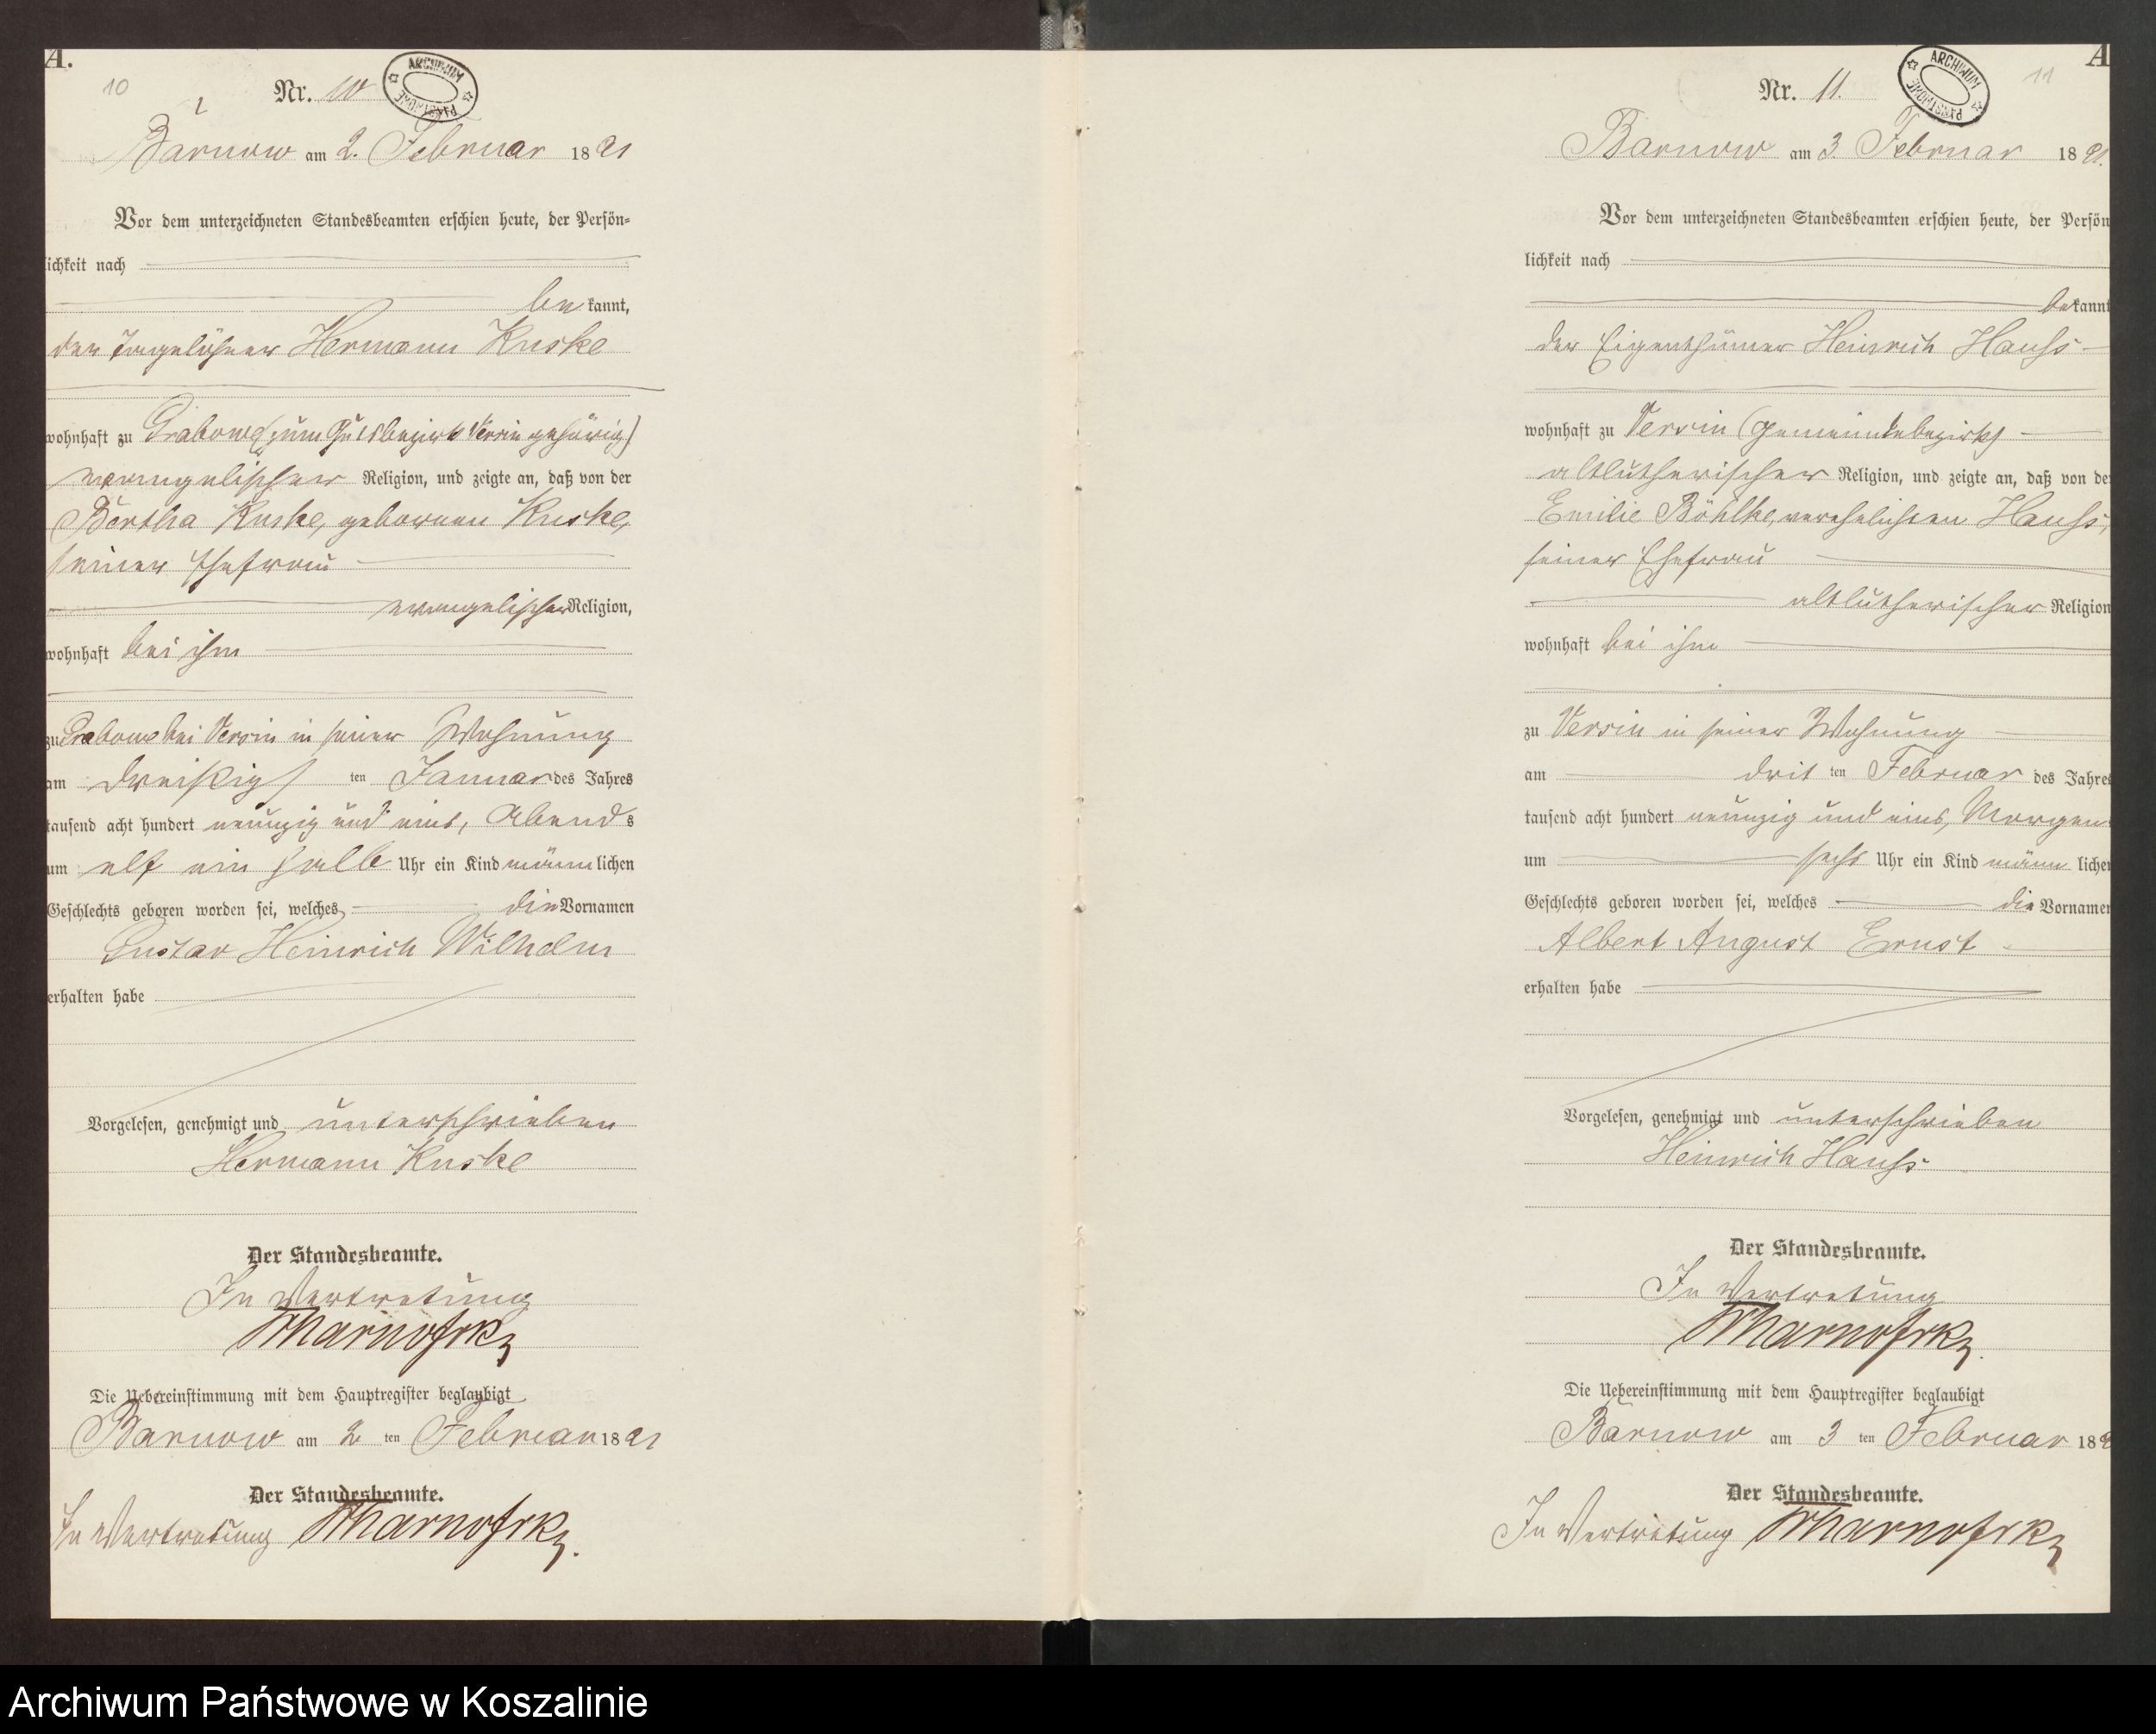 A.
10
Nr. 10
ARCHIWUM PAŃSTWOWE
Barnow am 2. Februar 1891
Vor dem unterzeichneten Standesbeamten erschien heute, der Persön=
lichkeit nach
bekannt,
der Tagelöhner Hermann Kuske
wohnhaft zu Grabowo (zum Gutsbezirk Versin gehörig)
evangelischer Religion, und zeigte an, daß von der
Bertha Kuske, geborenen Kuske,
seiner Ehefrau
evangelischer Religion,
wohnhaft bei ihm
zu Grabowo bei Versin in seiner Wohnung
am dreißigsten Januar des Jahres
tausend acht hundert neunzig und eins, Abends
um elf ein halb Uhr ein Kind männlichen
Geschlechts geboren worden sei, welches die Vornamen
Gustav Heinrich Wilhelm
erhalten habe
Vorgelesen, genehmigt und unterschrieben
Hermann Kuske
Der Standesbeamte.
In Vertretung
Die Uebereinstimmung mit dem Hauptregister beglaubigt
Barnow am 2 ten Februar 1891
Der Standesbeamte.
In Vertretung
A
11
Nr. 11.
ARCHIWUM PAŃSTWOWE
Barnow am 3. Februar 1891.
Vor dem unterzeichneten Standesbeamten erschien heute, der Persön
lichkeit nach
bekannt
der Eigenthümer Heinrich Hauss
wohnhaft zu Versin (Gemeindebezirk)
altlutherischer Religion, und zeigte an, daß von de
Emilie Böhlke, verehelichten Hauss,
seiner Ehefrau
altlutherischer Religion
wohnhaft bei ihm
zu Versin in seiner Wohnung
am dritten Februar des Jahres
tausend acht hundert neunzig und eins, Morgen
um sechs Uhr ein Kind männ liche
Geschlechts geboren worden sei, welches die Vornamen
Albert August Ernst
erhalten habe
Vorgelesen, genehmigt und unterschrieben
Heinrich Hauss
Der Standesbeamte.
In Vertretung
Die Uebereinstimmung mit dem Hauptregister beglaubigt
Barnow am 3 ten Februar 189
Der Standesbeamte.
In Vertretung
Archiwum Państwowe w Koszalinie